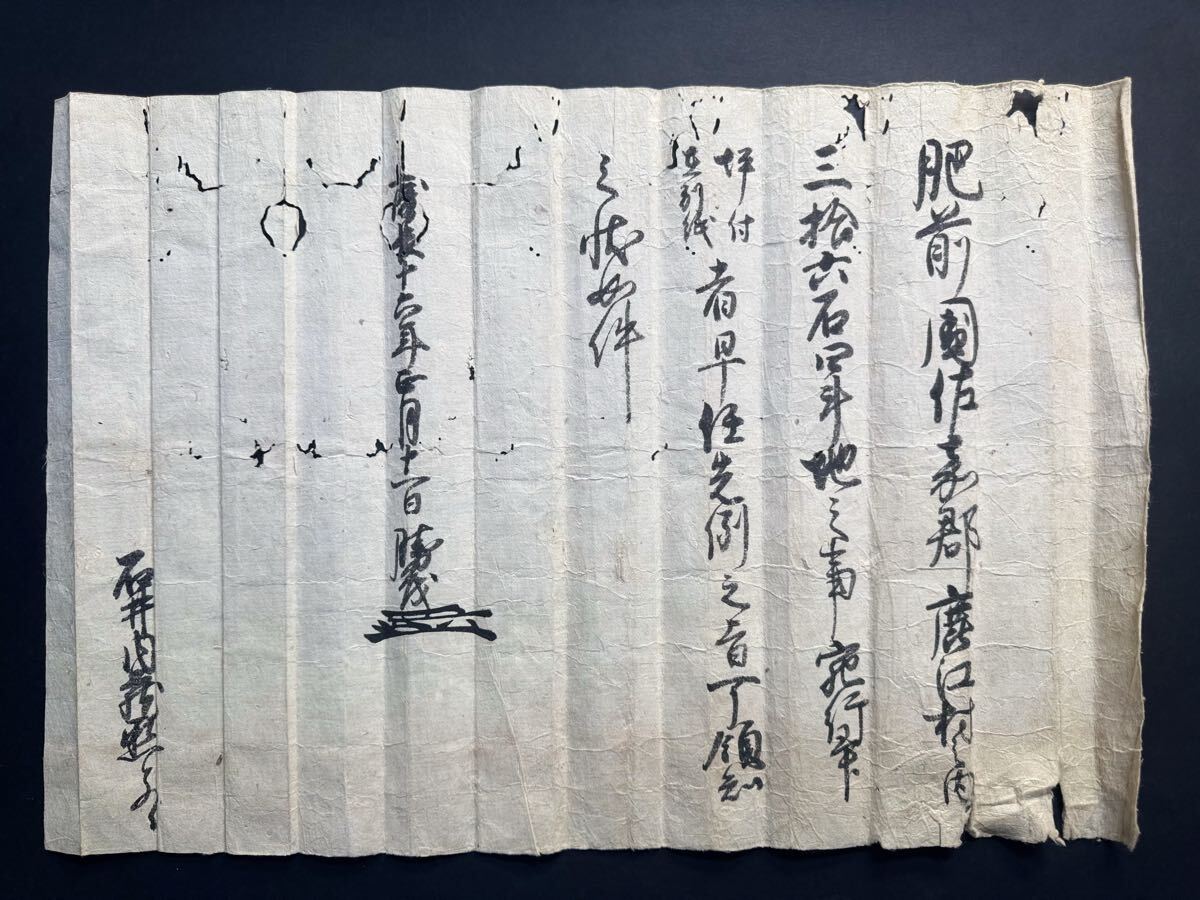 肥前國佐嘉郡鹿江村之内
三拾六石四斗地之事宛行畢
坪付
在別紙
者早任先例之旨可領知
之状如件
慶長十六年正月十一日 勝茂
石井内蔵